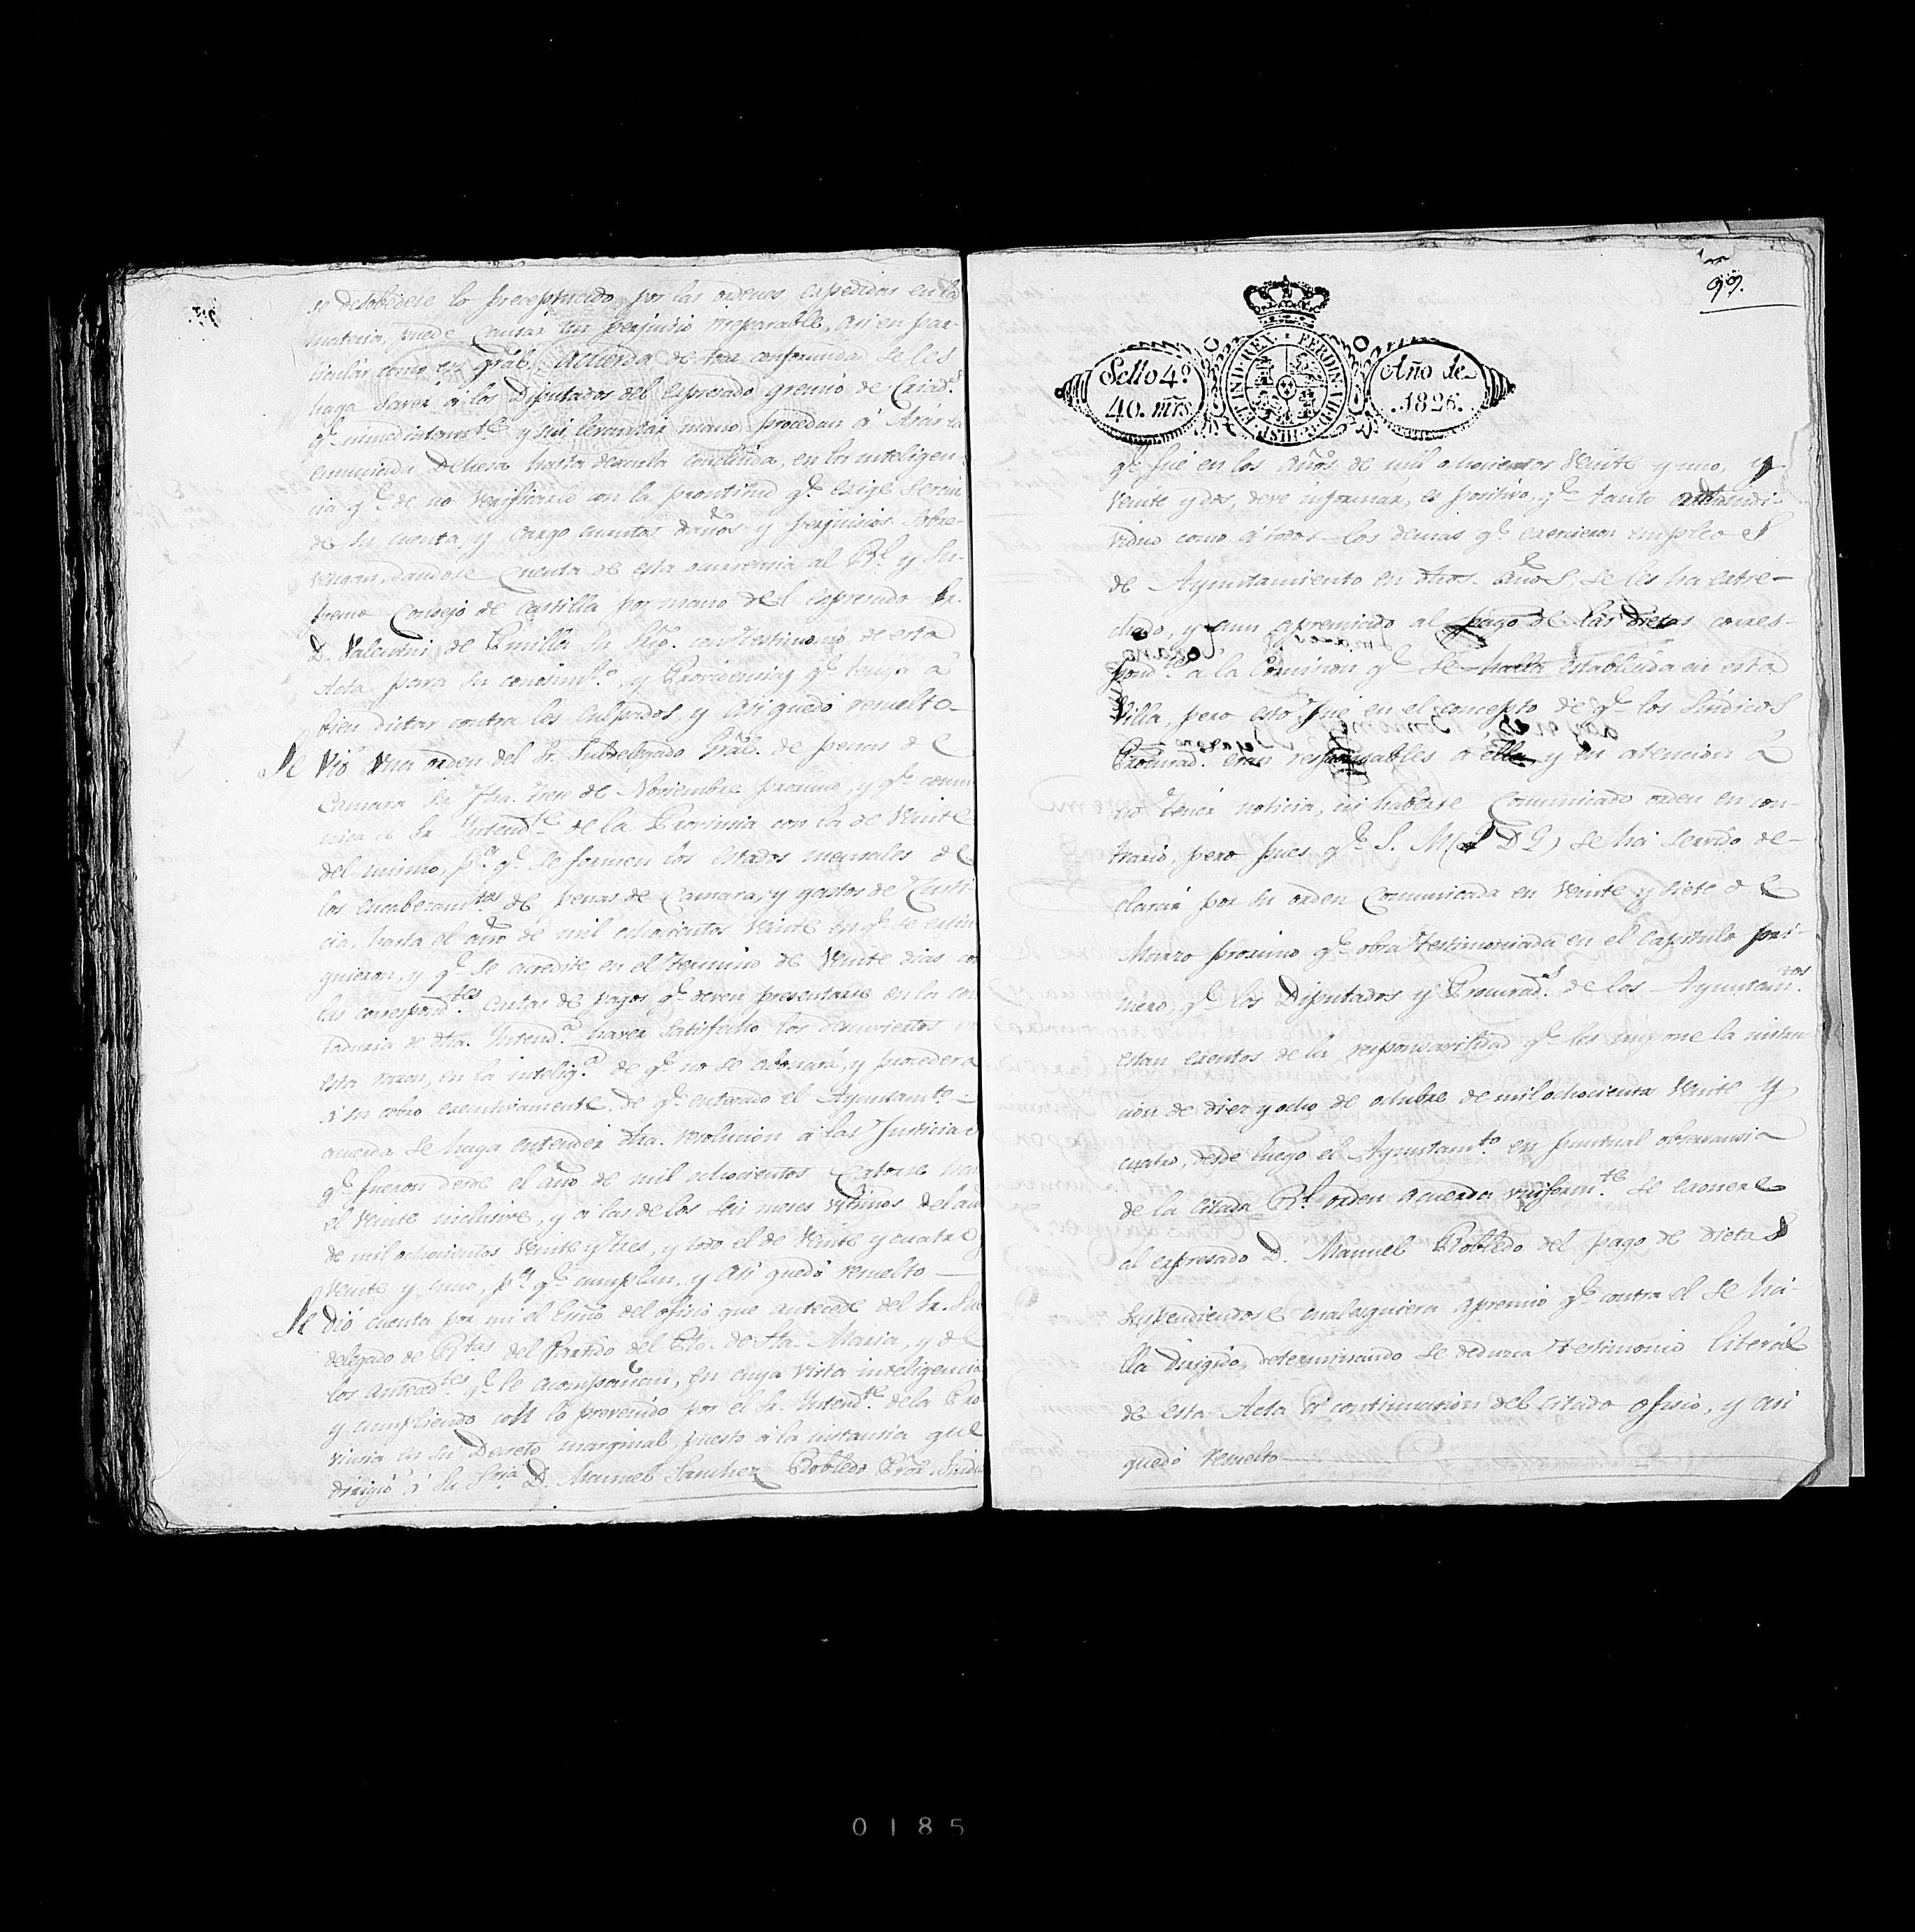 se desobedese lo preceptuado por las ordenes expedidas en la
materia, puede causar un perjuisio irreparable, asi en par-
ticular como en gral, acuerda de toda conformidad se les
haga saver á los Diputados del espresado gremio de Criad.s
q.e inmediatam.te y sin levantar mano procedan á Arar la
enunciada Dehesa hasta dexarla concluida, en la inteligen-
cia q.e de no verificarlo con la prontitud q.e exige seran
de su cuenta y cargo cuantos daños y perjuisios sobre-
vengan, dandose cuenta de esta ocurrencia al R.l y Su-
premo Consejo de Castilla por mano del espresado Sr.
D. Valentin de Pinilla su Srio. con testimonio de esta
Acta para su conosim.to, y Providencias q.e tenga á
bien dictar contra los culpados, y asi quedó resuelto-
Se Vió una orden del Sr. Subdelegado Gral. de penas de
Camara su fha. trese de Noviembre proximo, y q.e comu-
nica el Sr. Intend.te de la Provinsia con la de veinte
del mismo, p.a q.e se formen los estados mensales de
los encabesam.tos de penas de Camara, y gastos de Justi-
cia, hasta el año de mil ochocientos veinte en q.e se estin
guieron, y q.e se acredite en el termino de veinte dias con
las correspond.tes cartas de pagos q.e deven presentarse en la con
taduria de dha. Intend.a haver satisfecho los descuviertos
esta razon, en la intelig.a de q.e no se abonará, y procederá
á su cobro executivamente, de q.e enterado el Ayuntam.to
acuerda se haga entender dha. resolucion á las Justicias
q.e fueron desde el año de mil ochocientos catorse has
el veinte inclusive, y á las de los seis meses ultimos del año
de mil ochocientos veinte y tres, y todo el de veinte y cuatro y
veinte y cinco, p.a q.e cumplan, y asi quedó resuelto
Se dió cuenta por mi el Esno del ofisio que antecede del Sr. Sub
delegado de R.tas del Partido del Pto. de Sta. Maria, y de
los anteced.tes q.e le acompañan, en cuya vista inteligencia
y cumpliendo con lo prevenido por el Sr. Intend.te de la Pro
vincia en su Decreto marginal puesto á la instancia que
dirigió á Su Sria. D. Manuel Sanchez Robledo Pror. Sindi
99.
Sello 4.º
40. mrs
FERDIN. VII D. G. HISP. ET IND. REX.
Año de
.1826.
q.e fué en los años de mil ochocientos veinte y uno, y
veinte y dos, deve informar, es positivo, q.e tanto indi-
viduo como á todos los demas q.e exersieron empleos
de Ayuntamiento en dhos. años, se les ha estre-
chado, y aun apremiado al pago de las dietas corres-
pond.te a la Comision q.e se halla establecida en esta
Villa, pero esto fué en el concepto de q.e los Sindicos
Procurad.s eran responsables a ella y en atencion á
no tener noticia, ni haberse comunicado orden en con-
trario, pero pues q.e S. M. (Q D G) se há servido de-
clarar por su orden comunicada en veinte y siete de
Marzo proximo q.e obra testimoniada en el Capitulo pri-
mero, q.e los Diputados y Procurad.s de los Ayuntam.tos
estan exentos de la responsavilidad q.e les impone la instru
cion de diez y ocho de octubre de mil ochocientos veinte y
cuatro, desde luego el Ayuntam.to en puntual observansia
de la citada R.l orden acuerda uniform.te se exonere
al espresado D. Manuel Robledo del pago de dietas
suspendiendose cualesquiera apremio q.e contra el se há-
lla dirigido, determinando se deduzca testimonio literal
de esta Acta á continuacion del citado ofisio, y asi
quedó resuelto
0185